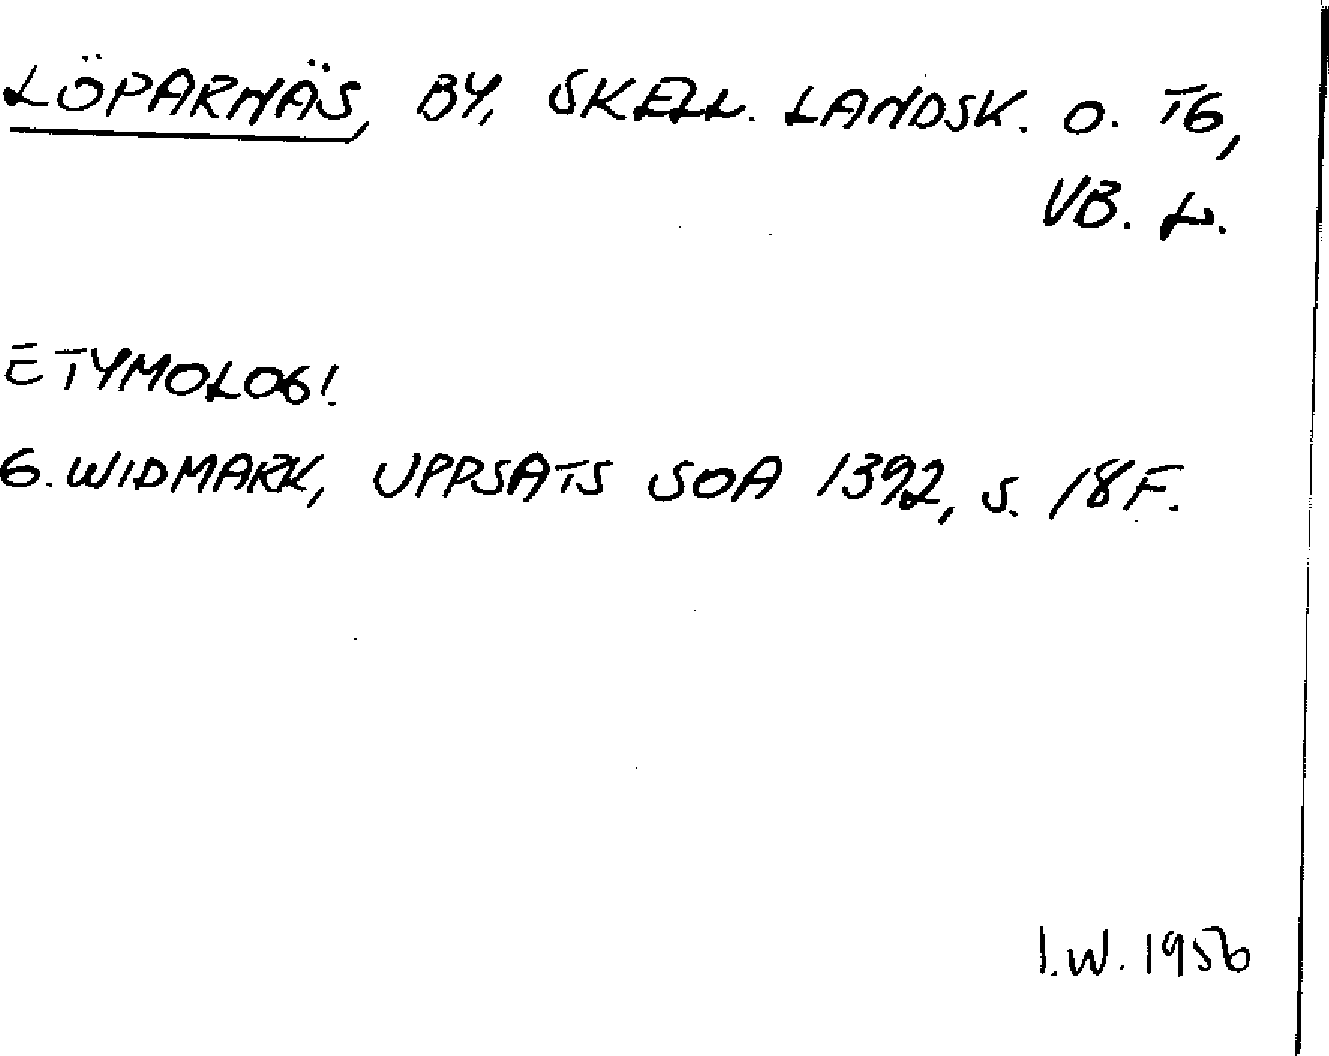 LÖPARNÄS, BY, SKELL. LANDSK. O. TG,
VB. L.
ETYMOLOGI.
G. WIDMARK, UPPSATS SOA 1392, S. 18 F.
I.W. 1956